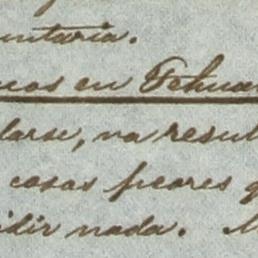 untaria.
cos en Tehuan
larse, va resul
casas peores q
idir nada.